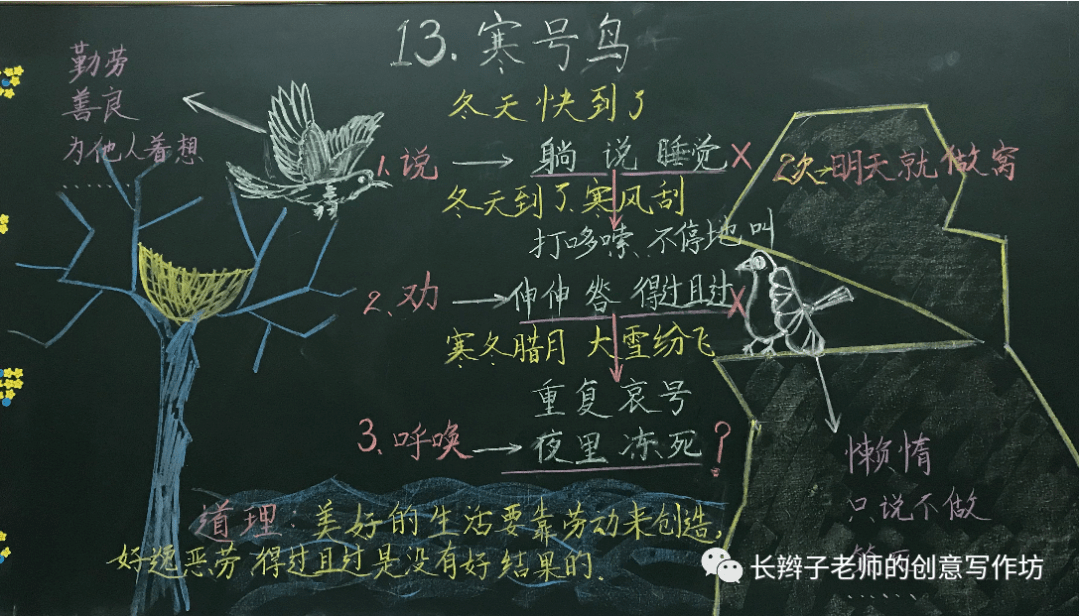 13.寒号鸟
勤劳
善良
为他人着想
……
冬天快到了
1.说 → 躺 说 睡觉 ×
2次→明天就做窝
冬天到了寒风刮
打哆嗦 不停地叫
2.劝 → 伸伸 答 得过且过 ×
寒冬腊月 大雪纷飞
重复哀号
3.呼唤 → 夜里冻死?
懒惰
只说不做
……
道理:美好的生活要靠劳动来创造,
好逸恶劳 得过且过是没有好结果的.
长辫子老师的创意写作坊